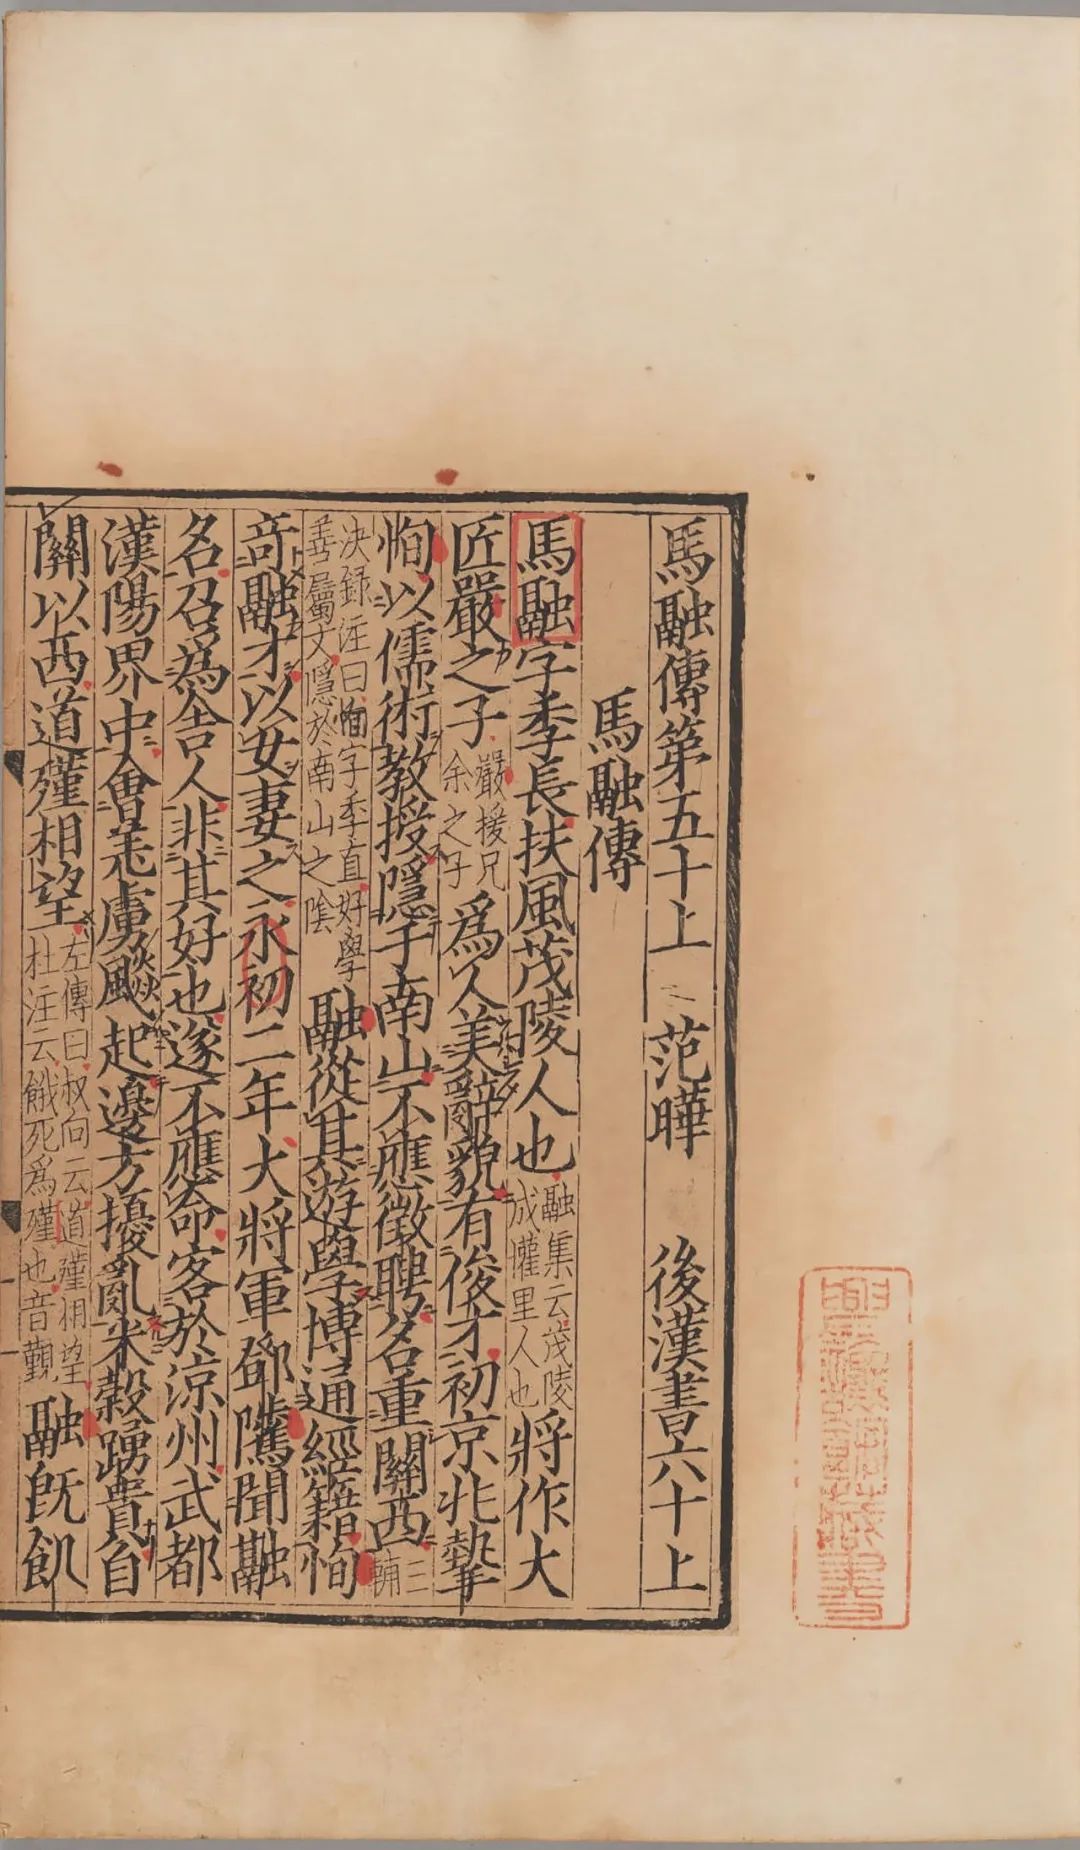 馬融傳第五十上 范曄 後漢書六十上
馬融傳
馬融字季長扶風茂陵人也融集云茂陵成懽里人也將作大
匠嚴之子嚴援兄余之子爲人美辭貌有俊才初京兆摯
恂以儒術教授隱于南山不應徵聘名重關西三輔
決録注曰恂字季直好學善屬文隱於南山之陰融從其遊學博通經籍恂
奇融才以女妻之永初二年大將軍鄧騭聞融
名召爲舍人非其好也遂不應命客於涼州武都
漢陽界中會羌虜飈起邊方擾亂米穀踴貴自
關以西道殣相望左傳曰叔向云道殣相望杜注云餓死爲殣也音覲融旣飢